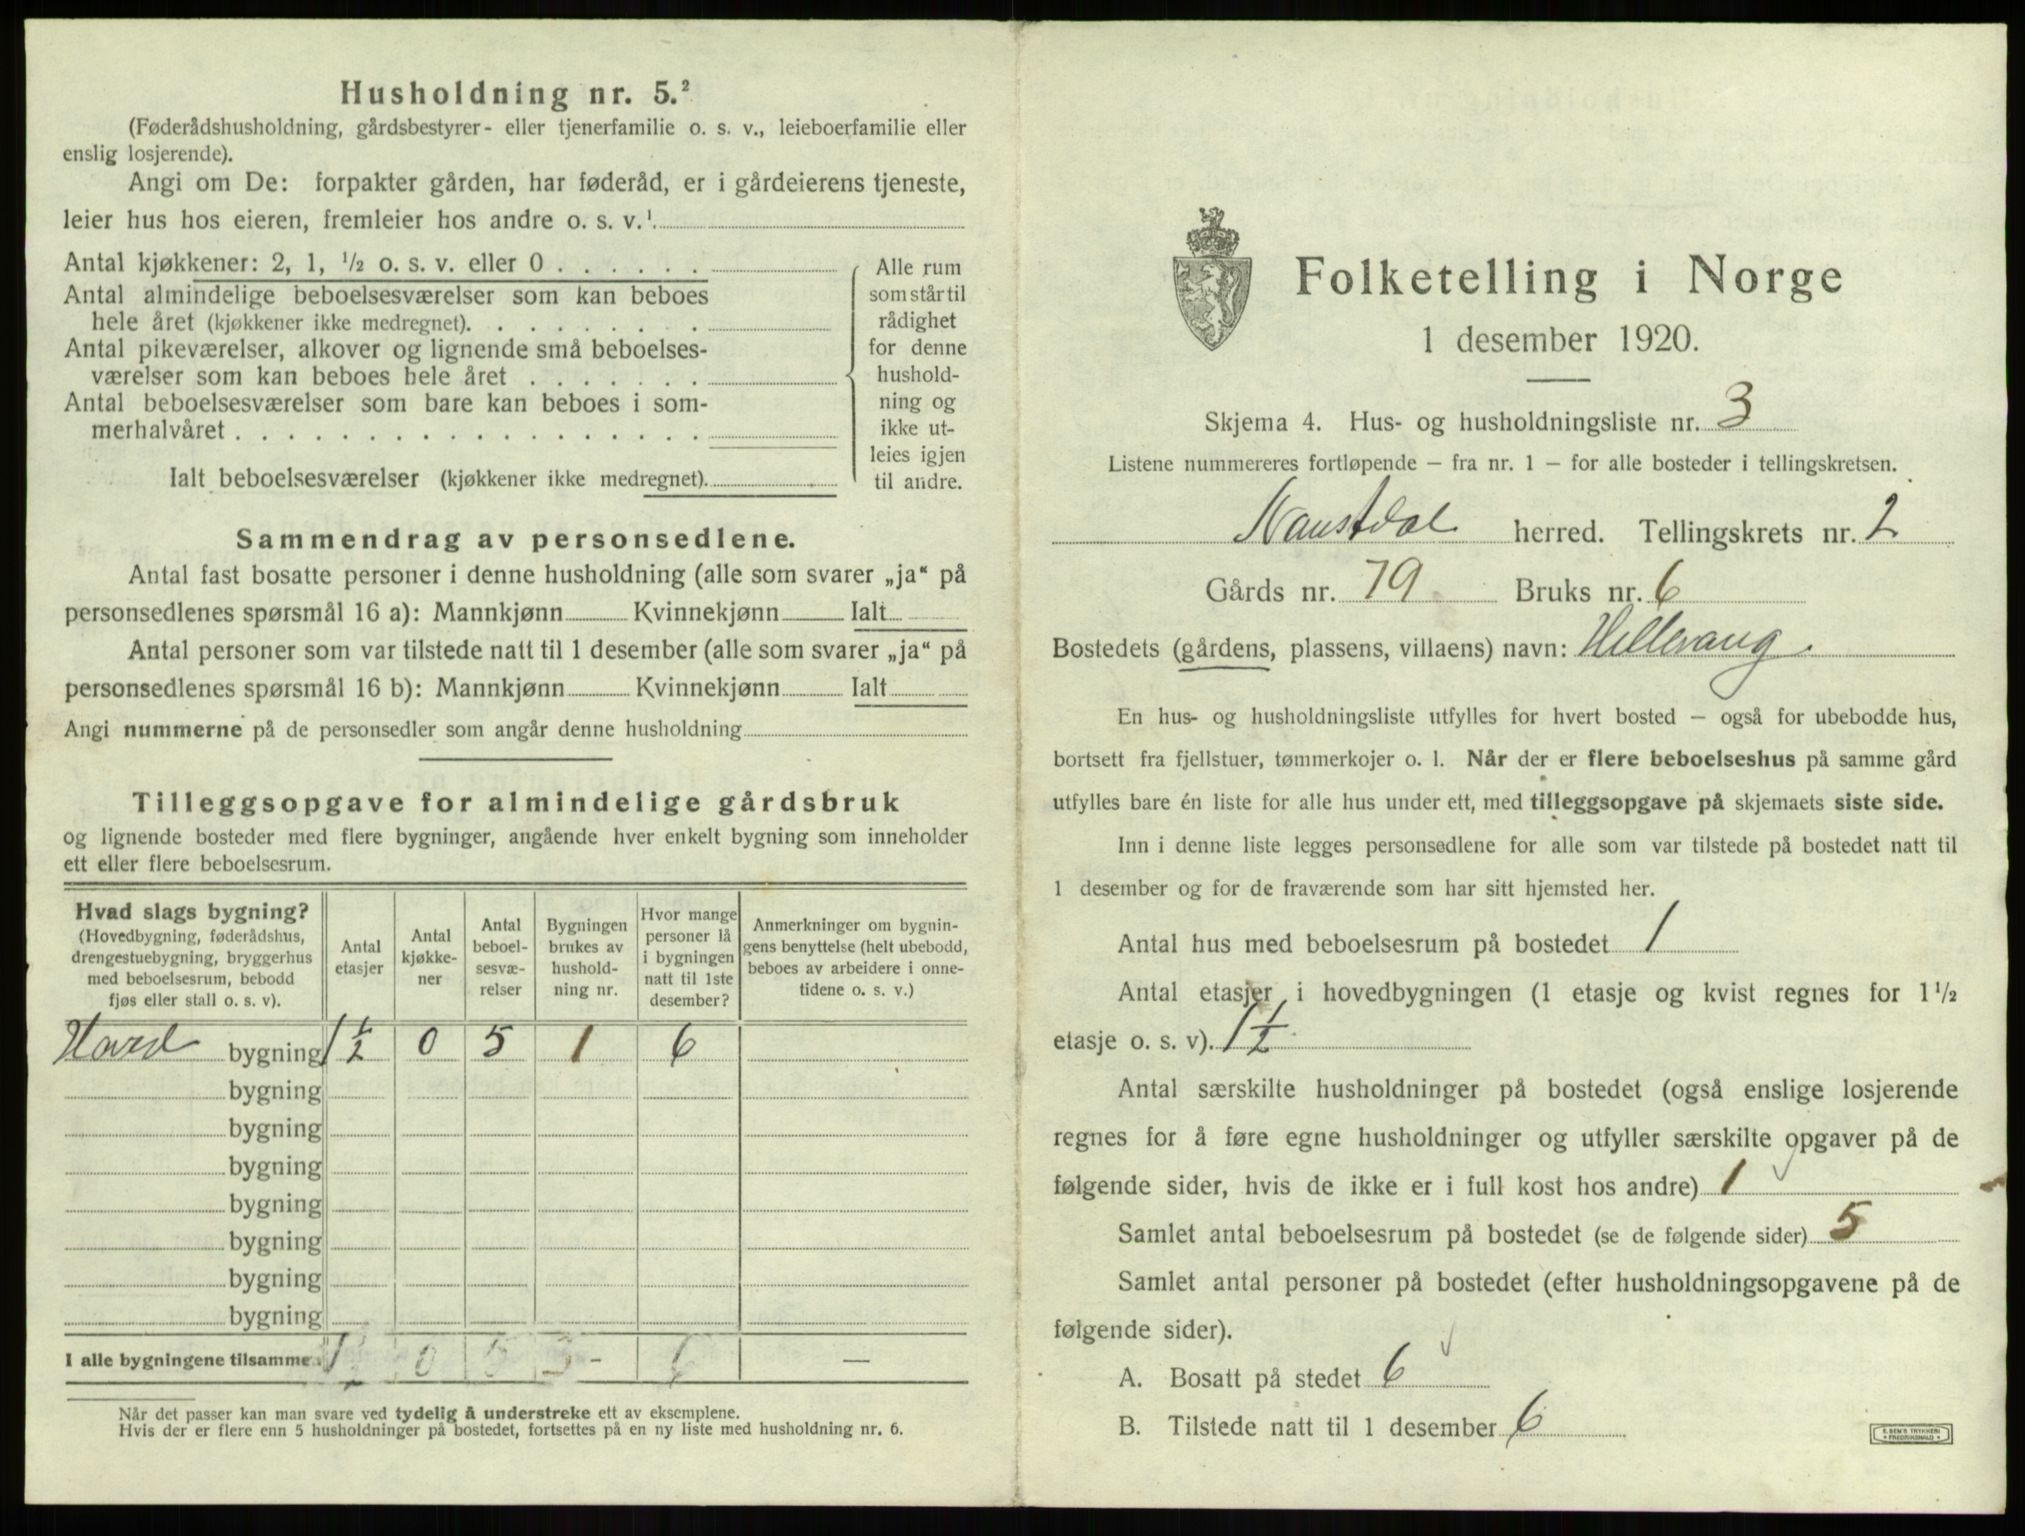 Husholdning nr. 5.²
(Føderådshusholdning, gårdsbestyrer- eller tjenerfamilie o. s. v., leieboerfamilie eller
enslig losjerende).
Angi om De: forpakter gården, har føderåd, er i gårdeierens tjeneste,
leier hus hos eieren, fremleier hos andre o. s. v.¹
Antal kjøkkener: 2, 1, ½ o. s. v. eller 0 . . . . . .
Antal almindelige beboelsesværelser som kan beboes
hele året (kjøkkener ikke medregnet). . . . . . . . .
Antal pikeværelser, alkover og lignende små beboelses-
værelser som kan beboes hele året . . . . . . .
Antal beboelsesværelser som bare kan beboes i som-
merhalvåret . . . . . . . . . . . . . . . . . .
Ialt beboelsesværelser (kjøkkener ikke medregnet).
Alle rum
som står til
rådighet
for denne
hushold-
ning og
ikke ut-
leies igjen
til andre.
Sammendrag av personsedlene.
Antal fast bosatte personer i denne husholdning (alle som svarer „ja“ på
personsedlenes spørsmål 16 a): Mannkjønn Kvinnekjønn Ialt
Antal personer som var tilstede natt til 1 desember (alle som svarer „ja“ på
personsedlenes spørsmål 16 b): Mannkjønn Kvinnekjønn Ialt
Angi nummerne på de personsedler som angår denne husholdning
Tilleggsopgave for almindelige gårdsbruk
og lignende bosteder med flere bygninger, angående hver enkelt bygning som inneholder
ett eller flere beboelsesrum.
Hvad slags bygning?
(Hovedbygning, føderådshus,
drengestuebygning, bryggerhus
med beboelsesrum, bebodd
fjøs eller stall o. s. v).
Antal
etasjer
Antal
kjøkke-
ner
Antal
beboel-
sesvæ-
relser
Bygningen
brukes av
hushold-
ning nr.
Hvor mange
personer lå
i bygningen
natt til 1ste
desember?
Anmerkninger om bygnin-
gens benyttelse (helt ubebodd,
beboes av arbeidere i onne-
tidene o. s. v.)
Hoved bygning 1½ 0 5 1 6
bygning
bygning
bygning
bygning
bygning
bygning
bygning
I alle bygningene tilsamme 0 - 6 —
Når det passer kan man svare ved tydelig å understreke ett av eksemplene.
Hvis der er flere enn 5 husholdninger på bostedet, fortsettes på en ny liste med husholdning nr. 6.
Folketelling i Norge
1 desember 1920.
Skjema 4. Hus- og husholdningsliste nr. 3
Listene nummereres fortløpende – fra nr. 1 – for alle bosteder i tellingskretsen.
Naustdal herred. Tellingskrets nr. 2
Gårds nr. 79 Bruks nr. 6
Bostedets (gårdens, plassens, villaens) navn: Hellevang
En hus- og husholdningsliste utfylles for hvert bosted – også for ubebodde hus,
bortsett fra fjellstuer, tømmerkojer o. l. Når der er flere beboelseshus på samme gård
utfylles bare én liste for alle hus under ett, med tilleggsopgave på skjemaets siste side.
Inn i denne liste legges personsedlene for alle som var tilstede på bostedet natt til
1 desember og for de fraværende som har sitt hjemsted her.
Antal hus med beboelsesrum på bostedet 1
Antal etasjer i hovedbygningen (1 etasje og kvist regnes for 1½
etasje o. s. v). 1½
Antal særskilte husholdninger på bostedet (også enslige losjerende
regnes for å føre egne husholdninger og utfyller særskilte opgaver på de
følgende sider, hvis de ikke er i full kost hos andre) 1
Samlet antal beboelsesrum på bostedet (se de følgende sider) 5
Samlet antal personer på bostedet (efter husholdningsopgavene på de
følgende sider).
A. Bosatt på stedet 6
B. Tilstede natt til 1 desember 6